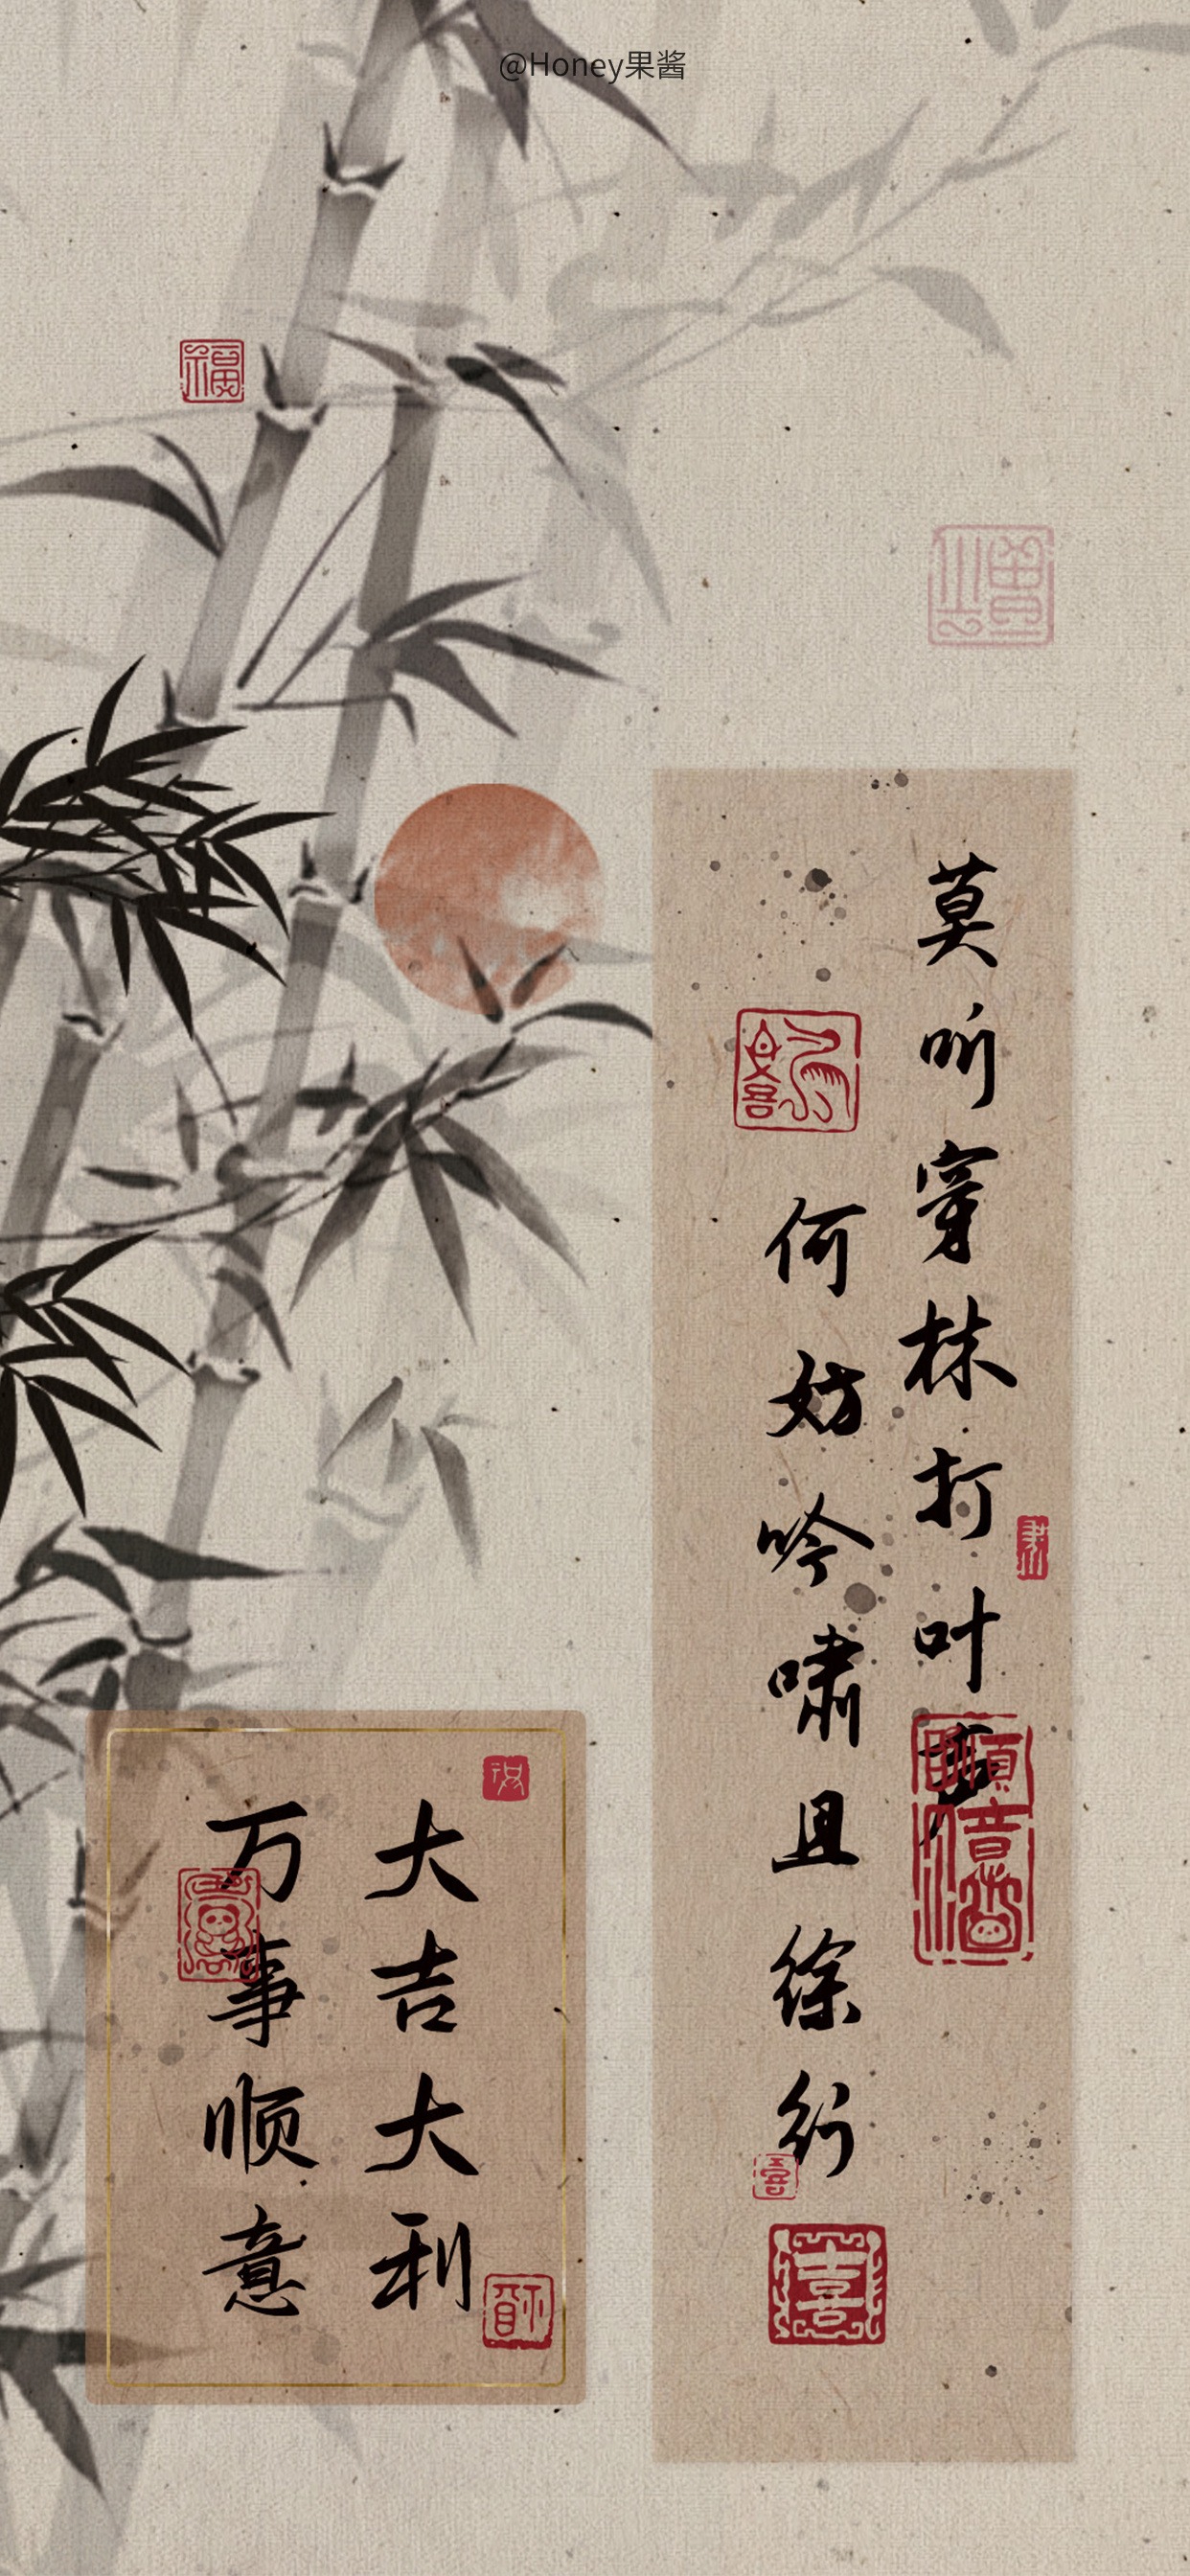 @Honey果酱
福
莫听穿林打叶声
何妨吟啸且徐行
大吉大利
万事顺意